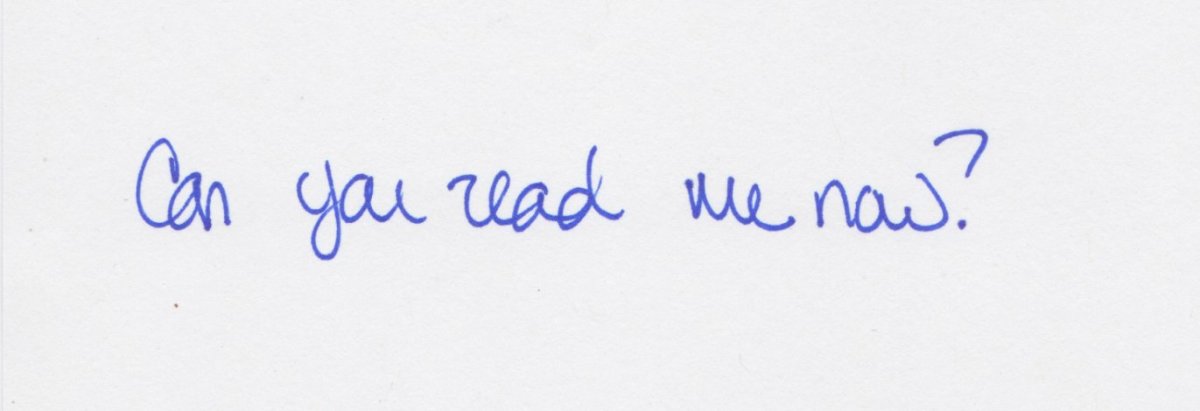 Can you read me now?